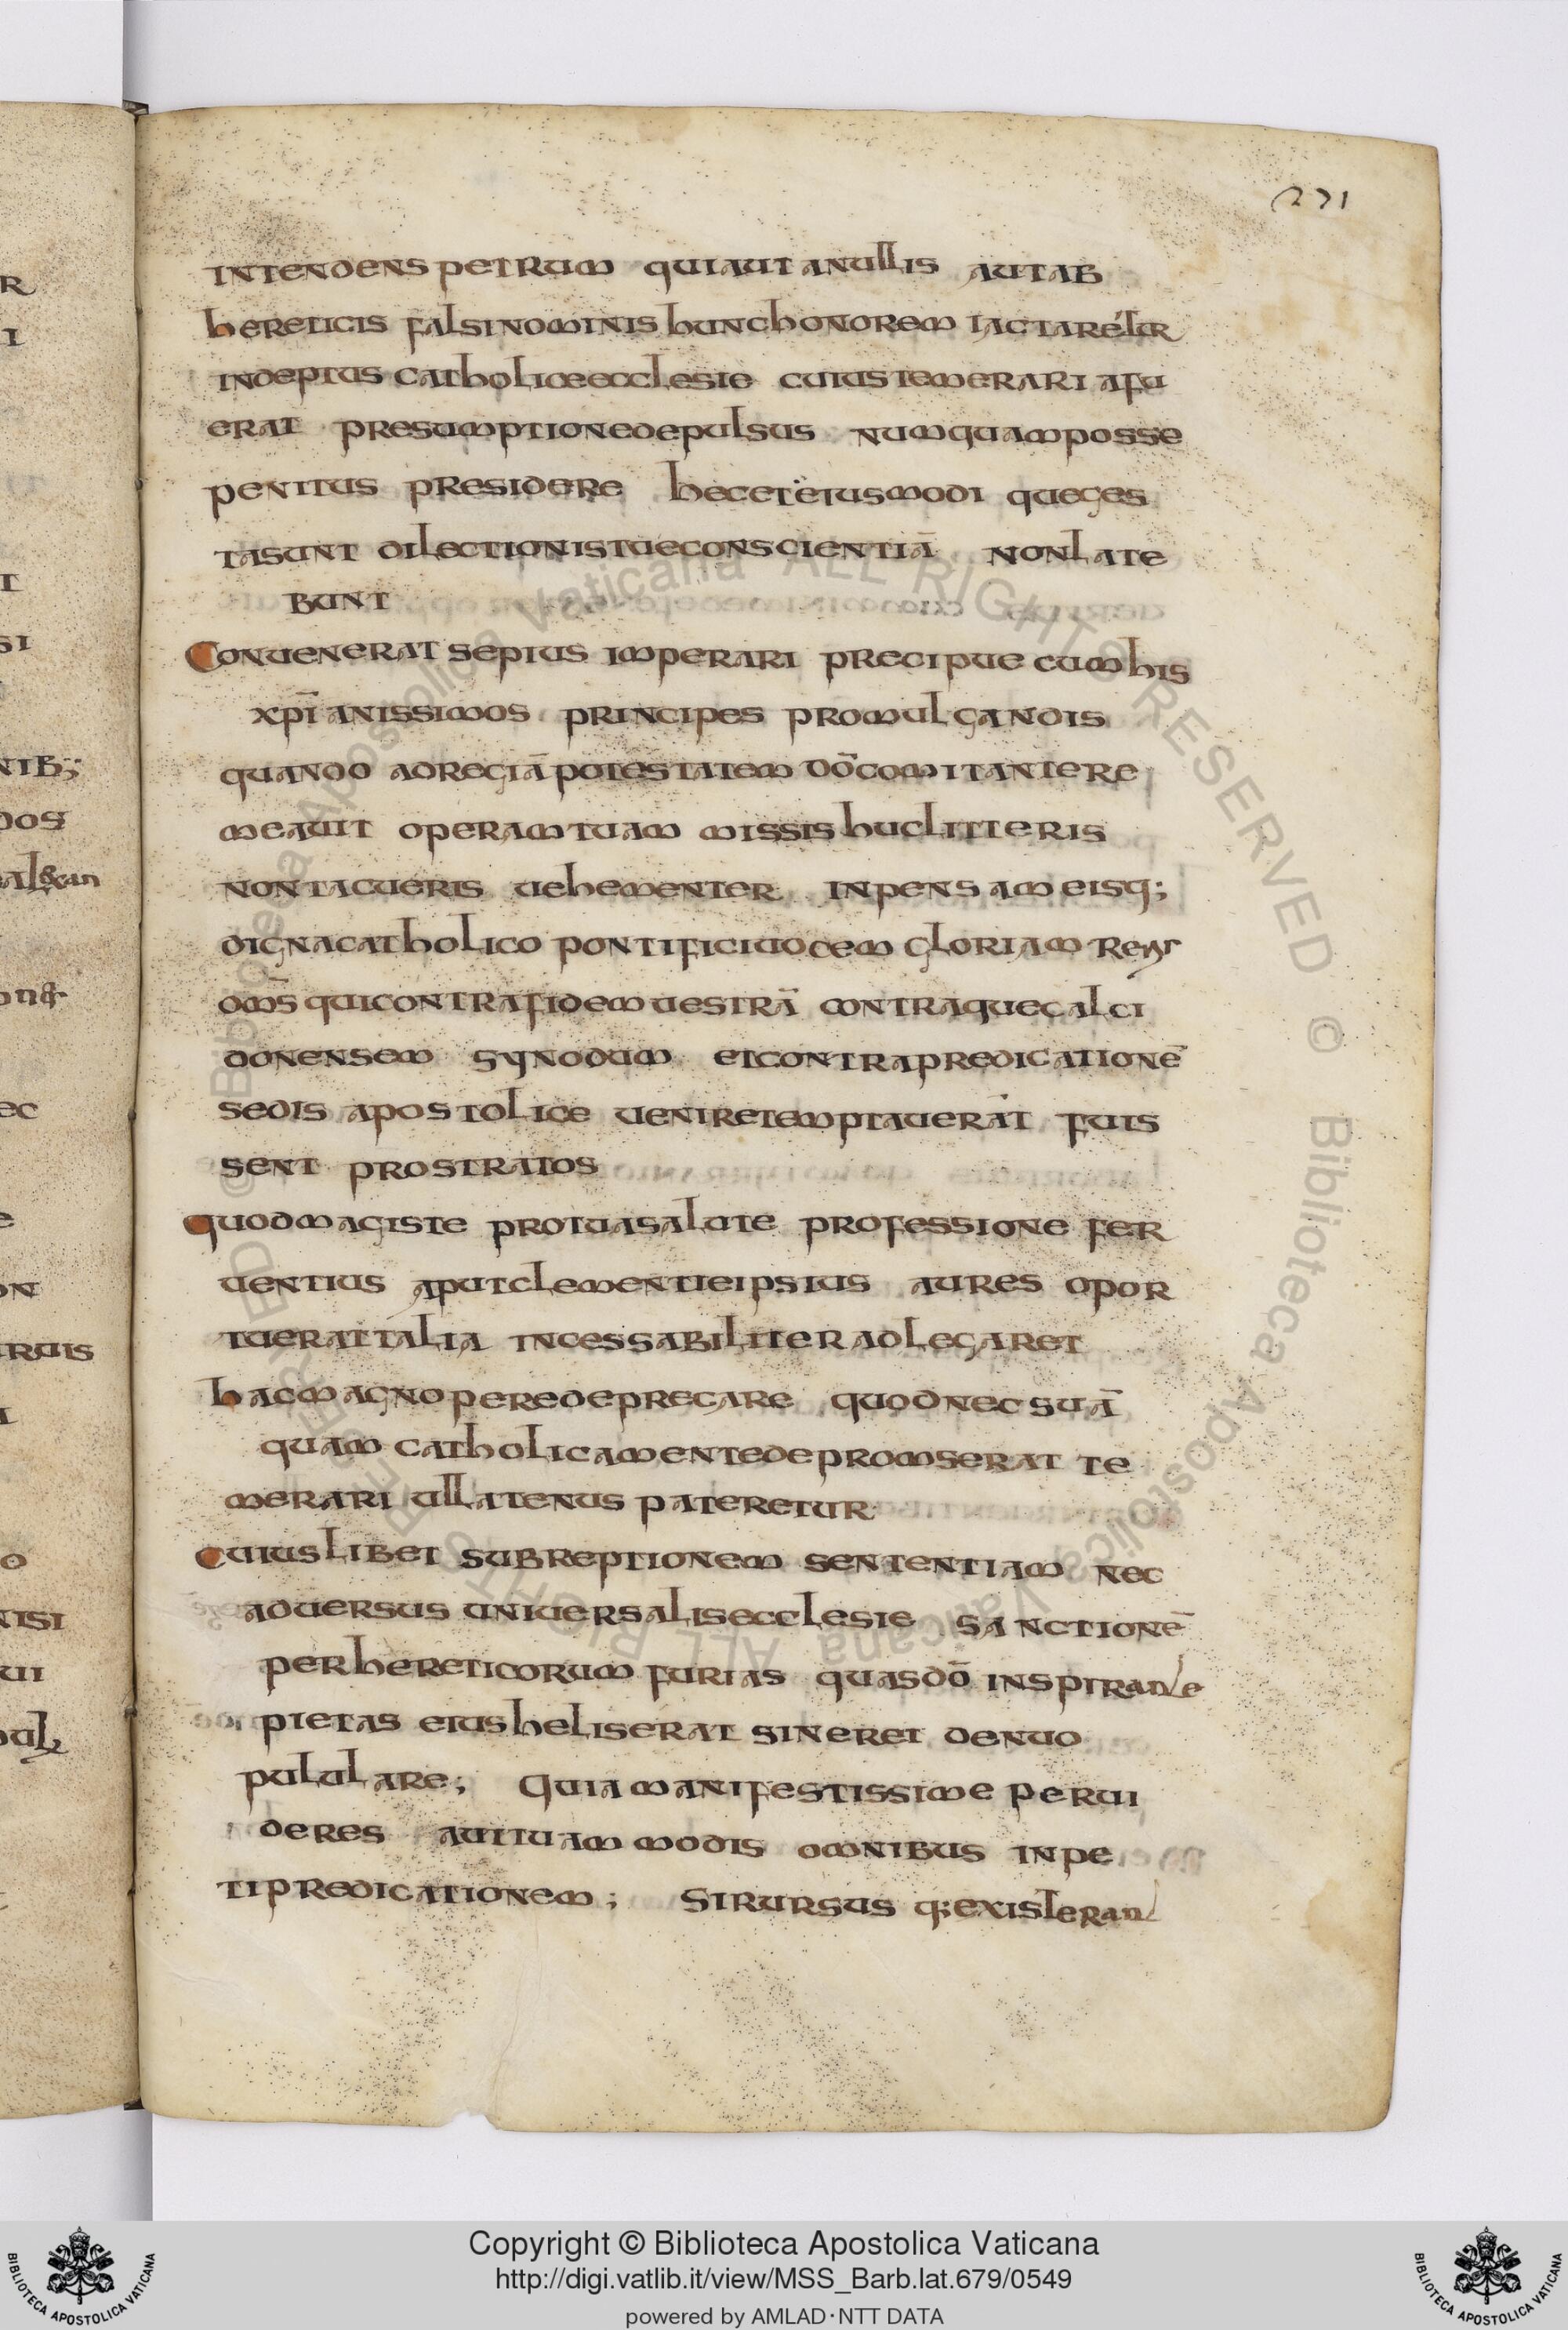 271
intendens petrum qui aut a nullis aut ab
hereticis falsi nominis hunc honorem iactaret
indeptus catholice ecclesie cuius temerari afu
erat presumptione depulsus numquam posse
penitus presidere hec et eiusmodi que ges
ta sunt dilectionis tue conscientiā non late
bunt
Convenerat sepius imperari precipue cum his
xp̄ianissimos principes promulgandis
quando ad regiā potestatem dō comitante re
meavit operam tuam missis huc litteris
non tacueris vehementer inpensam eisq;
digna catholico pontifici vocem gloriam
om̄s qui contra fidem vestrā contraque calci
donensem synodum et contra predicationē
sedis apostolice venire temptaverat fuis
sent prostratos
quod magis te pro tua salute professione fer
ventius aput clementie ipsius aures opor
tuerat talia incessabiliter adlegaret
hac magnopere deprecare quod nec suā
quam catholica mente depromserat te
merari ullatenus pateretur
cuiuslibet subreptionem sententiam nec
adversus universalis ecclesie sanctionē
per hereticorum furias quas dō inspirante
pietas eius heliserat sineret denuo
pululare; Quia manifestissime pervi
deres aut tuam modis omnibus inpe
ti predicationem; Si rursus q; existerant
Copyright © Biblioteca Apostolica Vaticana
http://digi.vatlib.it/view/MSS_Barb.lat.679/0549
powered by AMLAD·NTT DATA
BIBLIOTECA APOSTOLICA VATICANA
BIBLIOTECA APOSTOLICA VATICANA